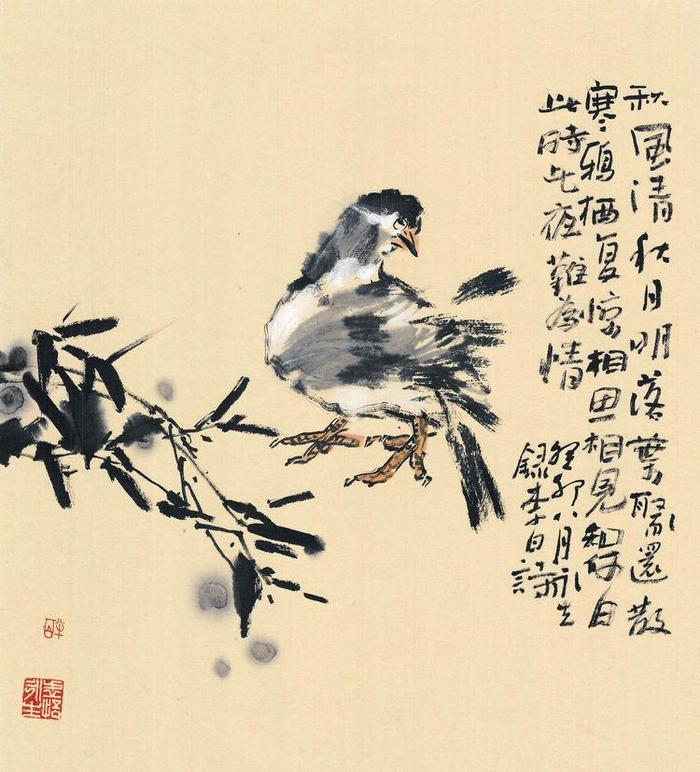 秋風清秋月明落葉聚還散
寒鴉栖复惊相思相見知何日
此時此夜難為情
癸卯八月永生
錄李白詩